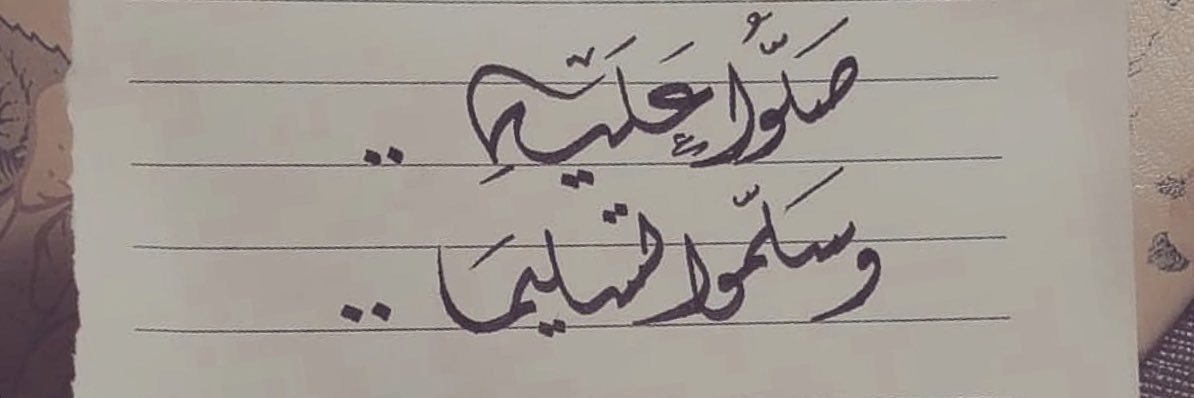 صَلُّوا عَلَيْهِ ..
وسَلّموا تسليمَا ..